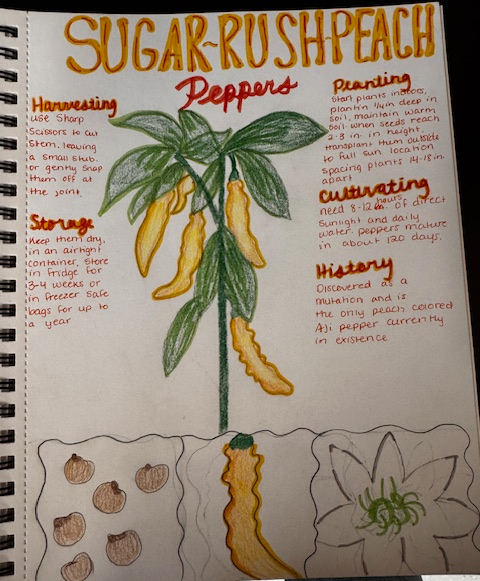 SUGAR-RUSH-PEACH
Peppers
Harvesting
use sharp
scissors to cut
stem, leaving
a small stub.
or gently snap
them off at
the joint.
Storage
Keep them dry,
in an airtight
container. Store
in fridge for
3-4 weeks or
in freezer safe
bags for up to
a year
Planting
Start plants indoors,
plant in 1/4in deep in
soil, maintain warm
soil. when seeds reach
2-3 in in height,
transplant them outside
to full sun location
spacing plants 14-18in.
apart
Cultivating
need 8-12 hours of direct
Sunlight and daily
water. peppers mature
in about 120 days.
History
Discovered as a
mutation and is
the only peach colored
Aji pepper currently
in existence